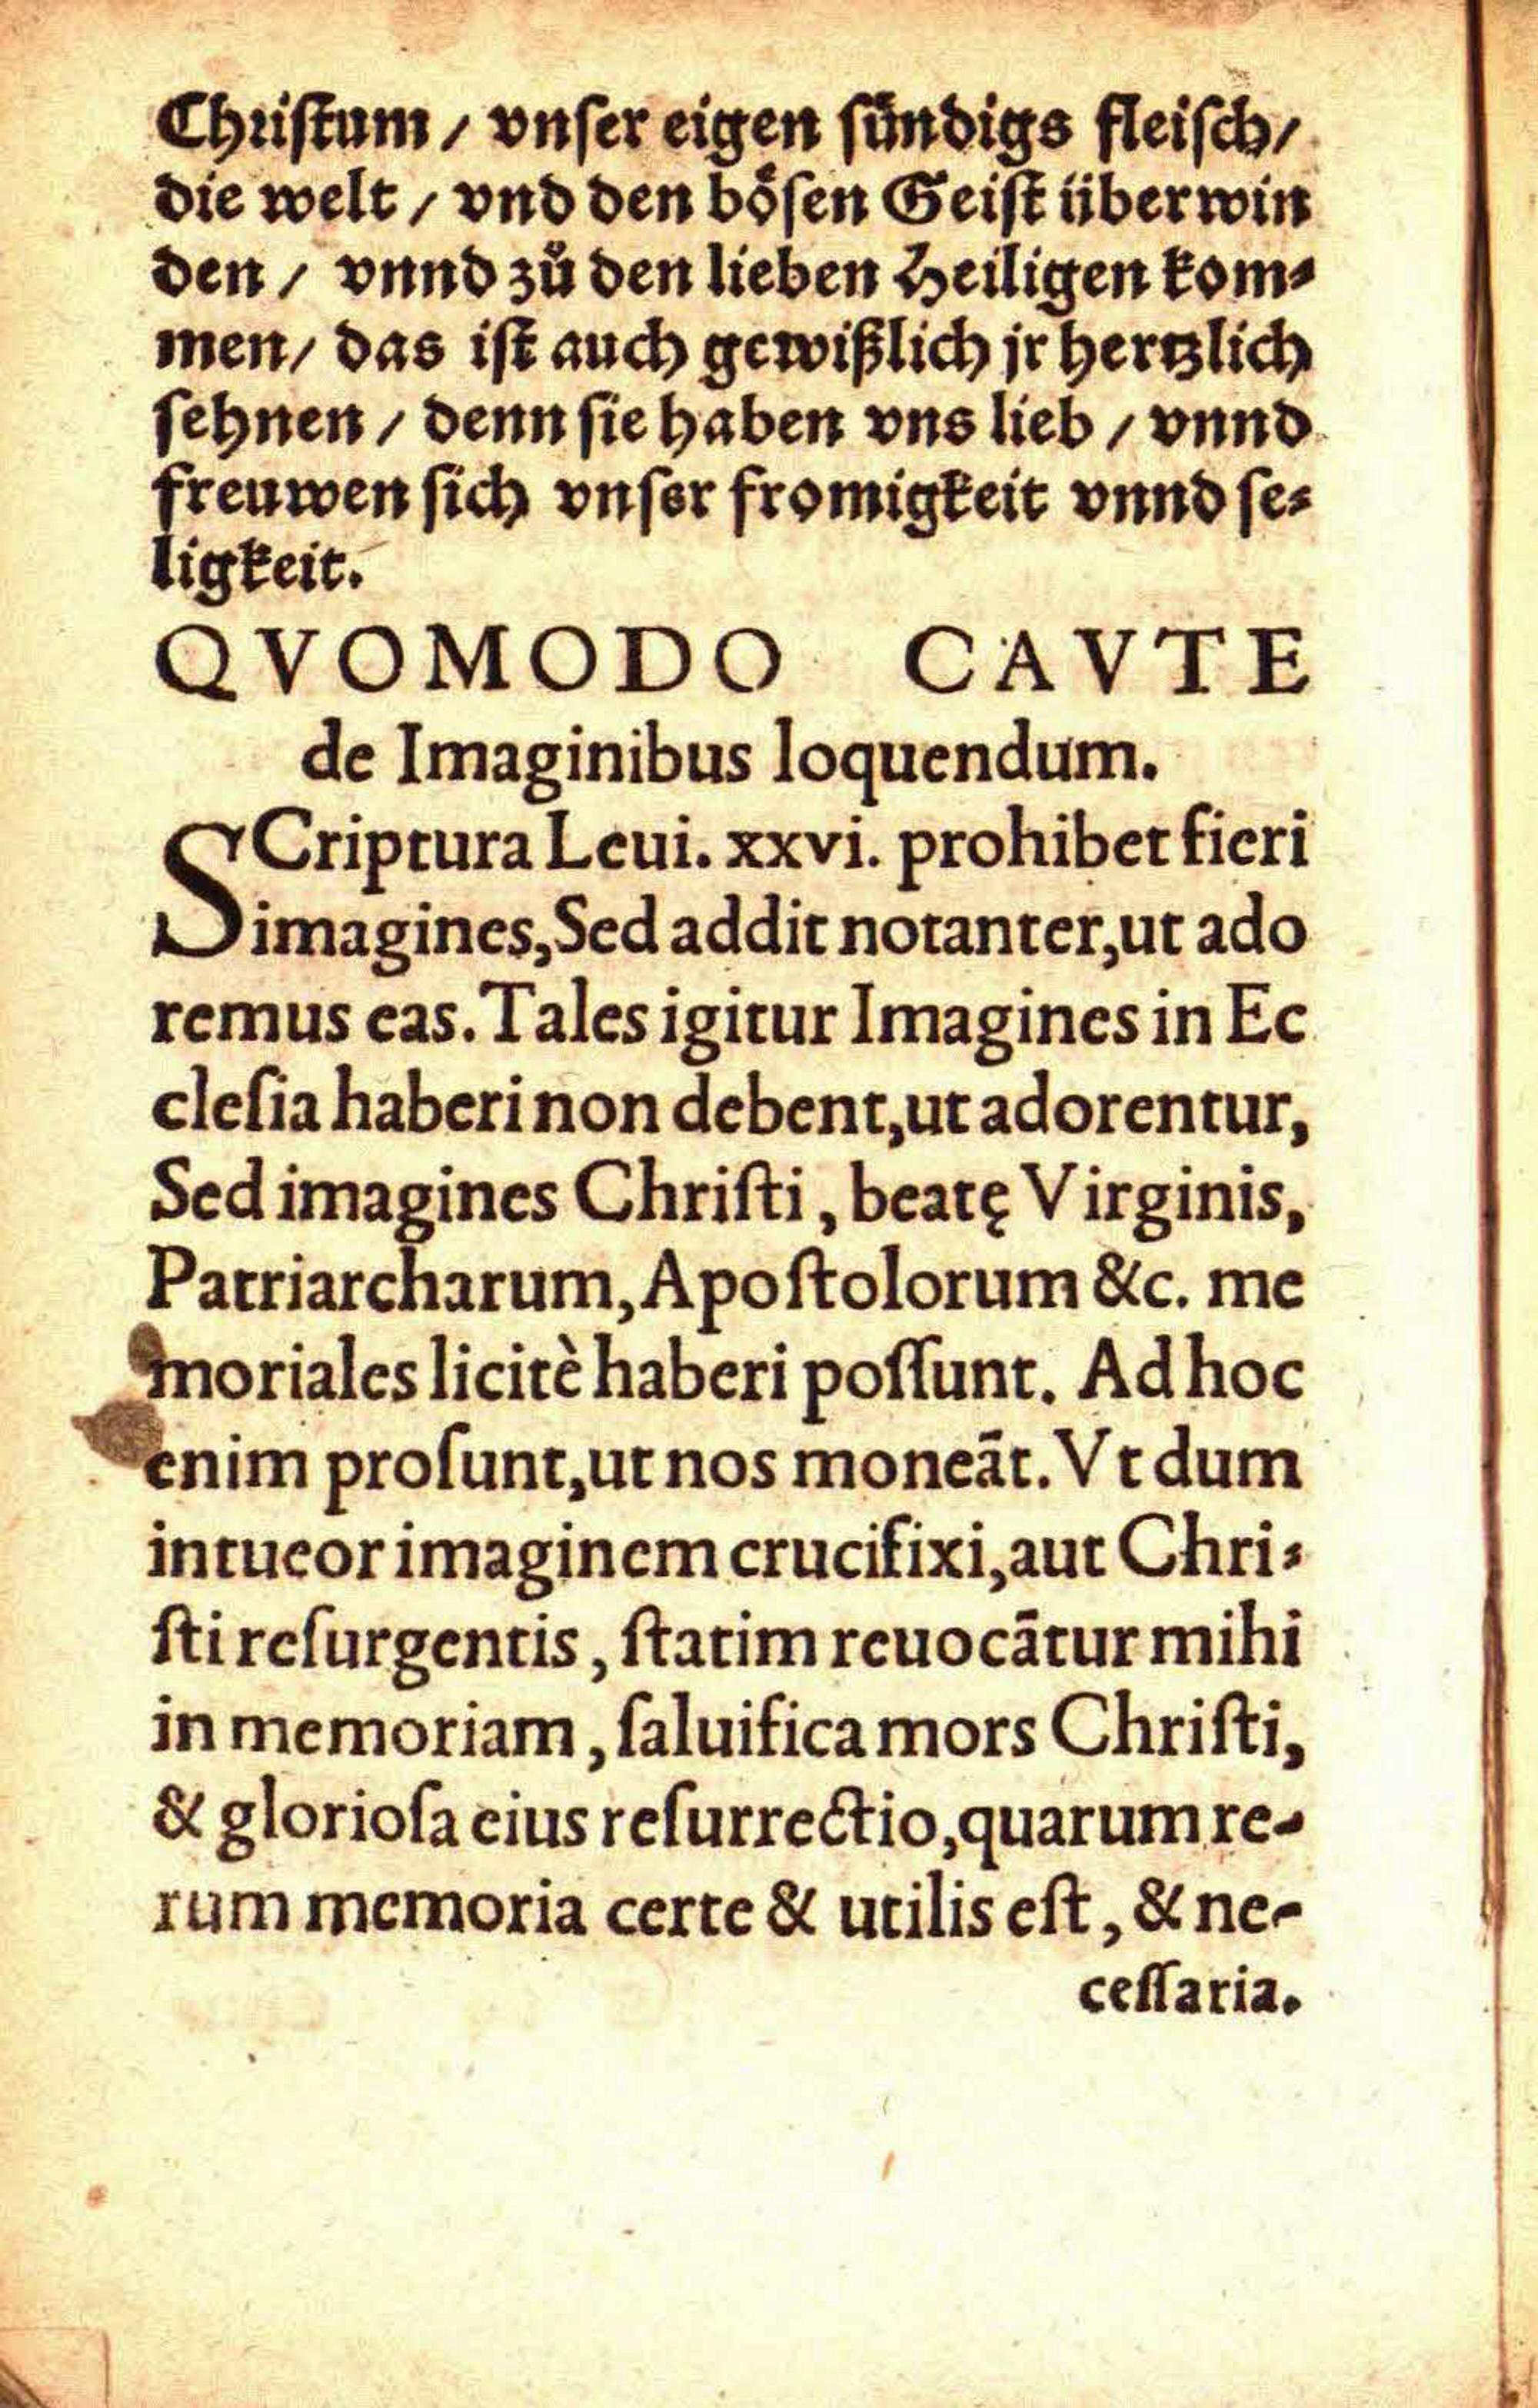 Christum / vnser eigen sündigs fleisch /
die welt / vnd den bösen Geist überwin
den / vnnd zů den lieben Heiligen kom⸗
men / das ist auch gewißlich jr hertzlich
sehnen / denn sie haben vns lieb / vnnd
freuwen sich vnser fromigkeit vnnd se⸗
ligkeit.
QVOMODO CAVTE
de Imaginibus loquendum.
SCriptura Leui. xxvi. prohibet fieri
imagines, Sed addit notanter, ut ado
remus eas. Tales igitur Imagines in Ec
cleſia haberi non debent, ut adorentur,
Sed imagines Chriſti, beatę Virginis,
Patriarcharum, Apoſtolorum &c. me
moriales licitè haberi poſſunt. Ad hoc
enim proſunt, ut nos moneāt. Vt dum
intueor imaginem crucifixi, aut Chri⸗
ſti reſurgentis, ſtatim reuocātur mihi
in memoriam, ſaluifica mors Chriſti,
& glorioſa eius reſurrectio, quarum re-
rum memoria certe & utilis eſt, & ne-
ceſſaria.